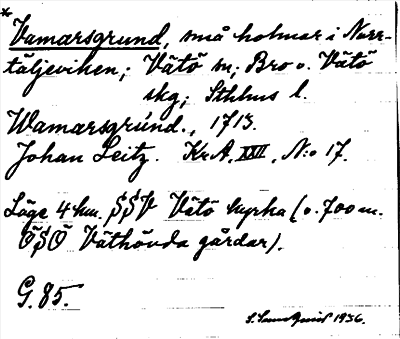 * Vamarsgrund, små holmar i Norr-
täljeviken; Vätö sn; Bro o. Vätö
skg; Sthlms l.
Wamarsgrúnd., 1713.
Johan Leitz. KrA, XXII, N:o 17.
Läge 4 km. SSV Vätö kyrka (o. 700 m.
ÖSÖ Väthövda gårdar).
G. 85.
1936.